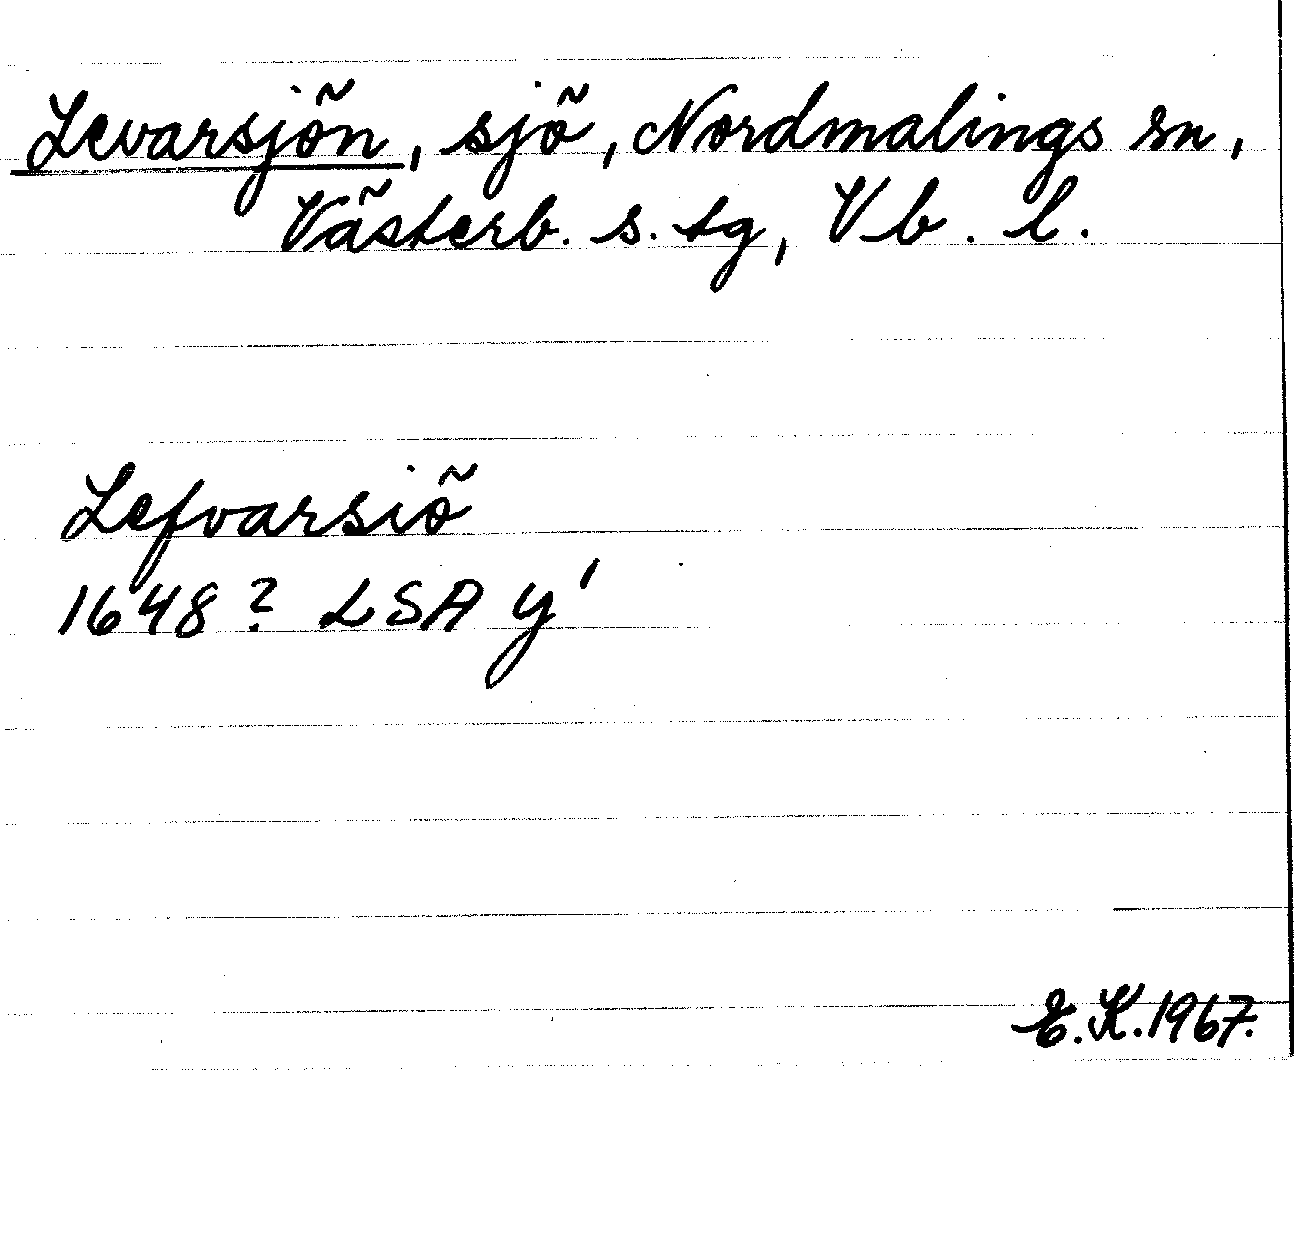 Levarsjön, sjö, Nordmalings sn,
Västerb. s. tg, Vb. l.
Lefvarsiö
1648? LSA y'
E.K.1967.